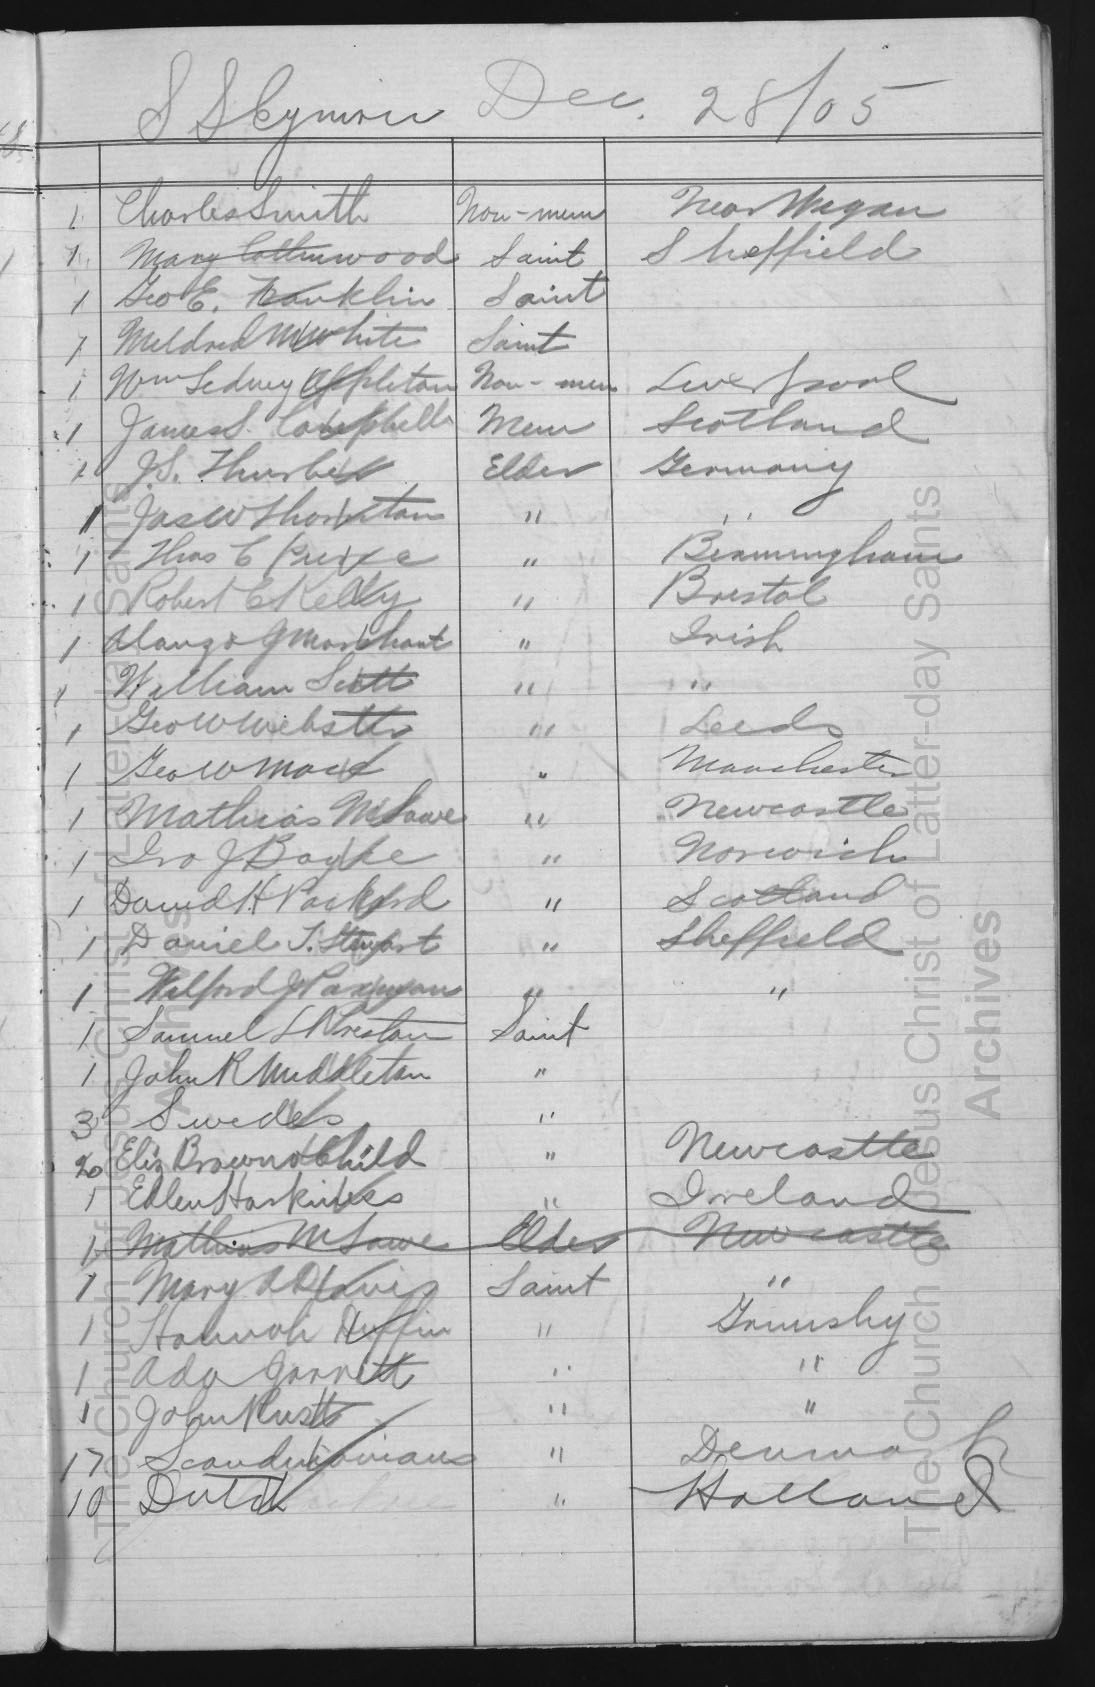 S S Cymric Dec. 28/05
1 Charles Smith Non-mem Near Wigan
1 Mary Catherwood Saint Sheffield
1 Geo E. Franklin Saint
1 Mildred M White Saint
1 Wm Sedney Appleton Non-mem Liverpool
1 James S. Campbell Mem Scotland
1 J.S. Thurber Elder Germany
1 Jas W Thornton " "
1 Thos C " Birmingham
1 Robert E Kelly " Bristol
1 Alonzo G Marchant " Irish
1 William Scott " "
1 Geo W Webster " Leeds
1 Geo W Mace " Manchester
1 Mathias M Lowe " Newcastle
1 Ira J Boyce " Norwich
1 David H Packard " Scotland
1 Daniel T. Stewart " Sheffield
1 Wilford J Paxman " "
1 Samuel L Preston Saint
1 John R Middleton "
3 Swedes "
Eliz Brown & Child " Newcastle
1 Ellen Harkness " Ireland
1 Mathias M Lowe Elder Newcastle
1 Mary A Davis Saint "
1 Hannah Huffin " Grimsby
1 Ada Garrett " "
1 John Rust " "
17 Scandinavians " Denmark
10 Dutch " Holland
The Church of Jesus Christ of Latter-day Saints
Archives
The Church of Jesus Christ of Latter-day Saints
Archives